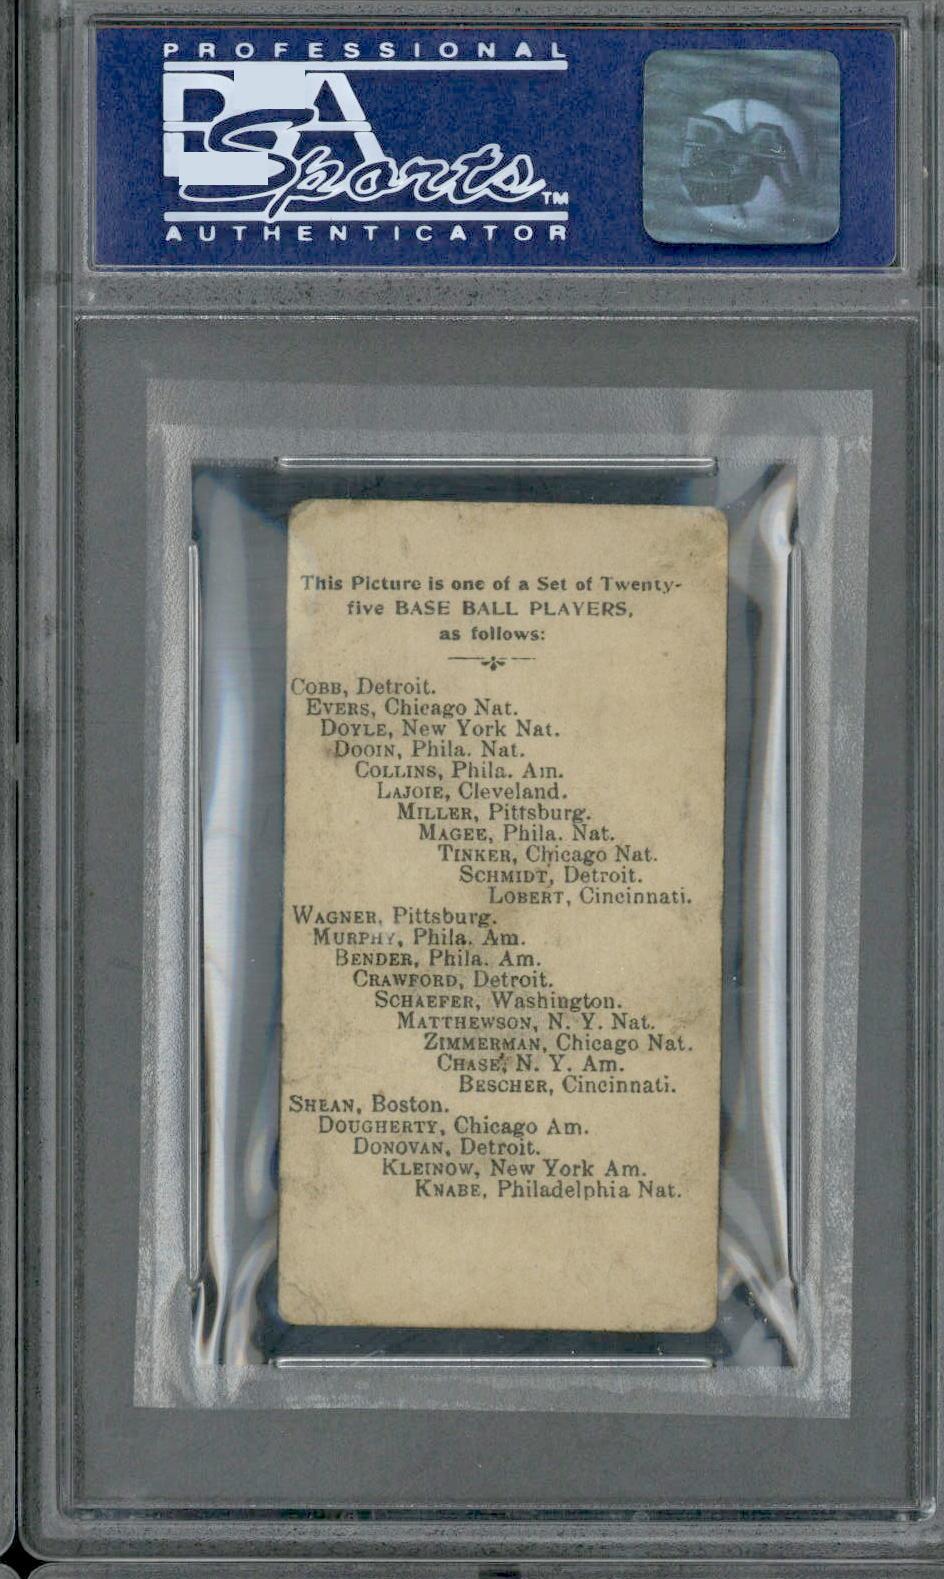 PROFESSIONAL
PSA
Sports™
AUTHENTICATOR
This Picture is one of a Set of Twenty-
five BASE BALL PLAYERS,
as follows:
COBB, Detroit.
EVERS, Chicago Nat.
DOYLE, New York Nat.
DOOIN, Phila. Nat.
COLLINS, Phila. Am.
LAJOIE, Cleveland.
MILLER, Pittsburg.
MAGEE, Phila. Nat.
TINKER, Chicago Nat.
SCHMIDT, Detroit.
LOBERT, Cincinnati.
WAGNER, Pittsburg.
MURPHY, Phila. Am.
BENDER, Phila. Am.
CRAWFORD, Detroit.
SCHAEFER, Washington.
MATTHEWSON, N. Y. Nat.
ZIMMERMAN, Chicago Nat.
CHASE, N. Y. Am.
BESCHER, Cincinnati.
SHEAN, Boston.
DOUGHERTY, Chicago Am.
DONOVAN, Detroit.
KLEINOW, New York Am.
KNABE, Philadelphia Nat.